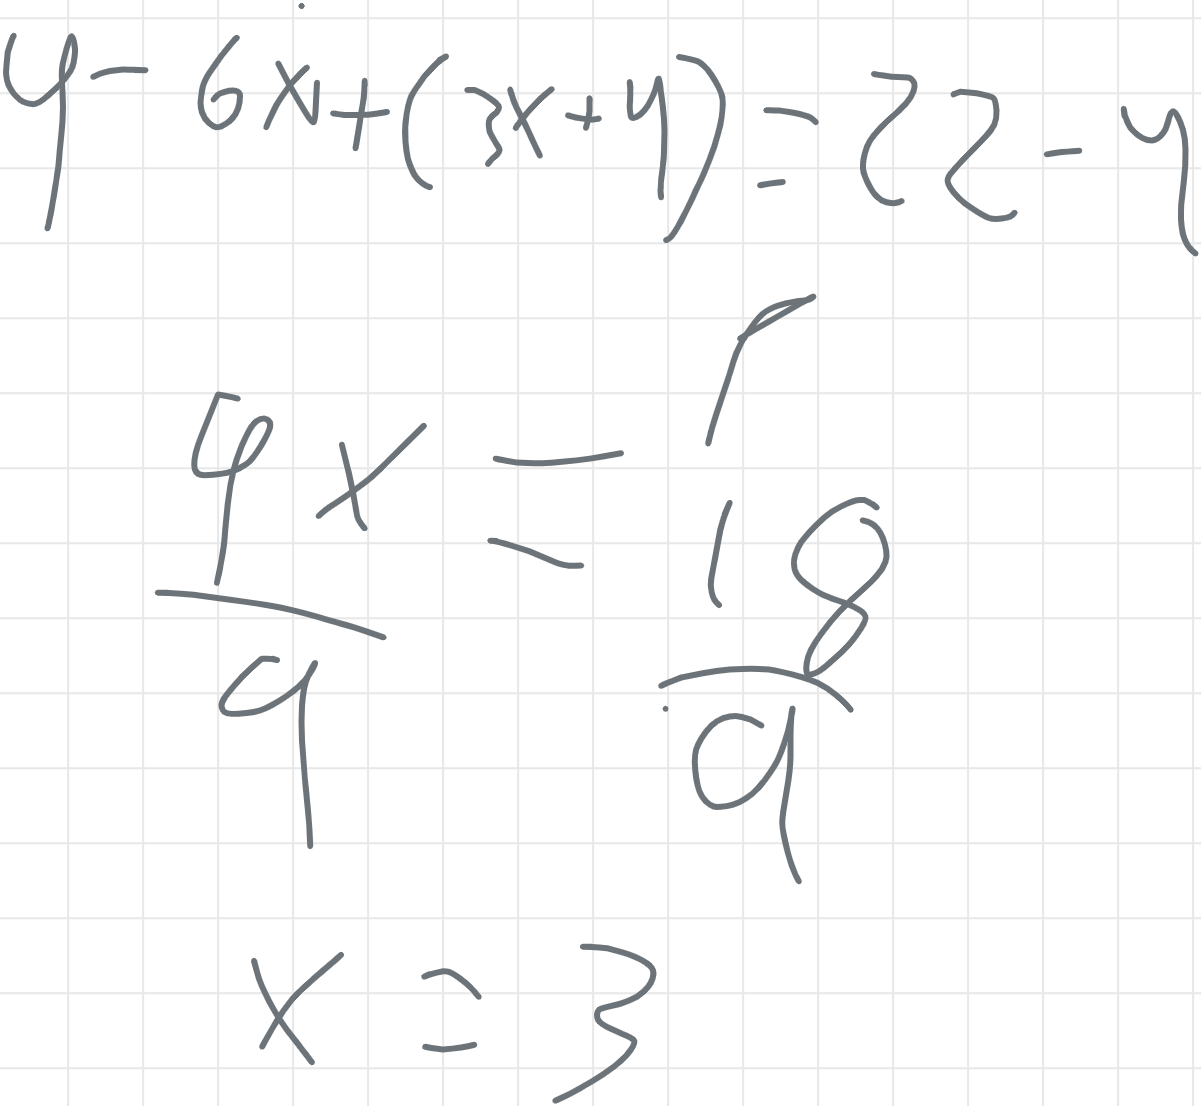 4 - 6x + (3x + 4) = 22 - 4
9x = 18
9 9
x = 3